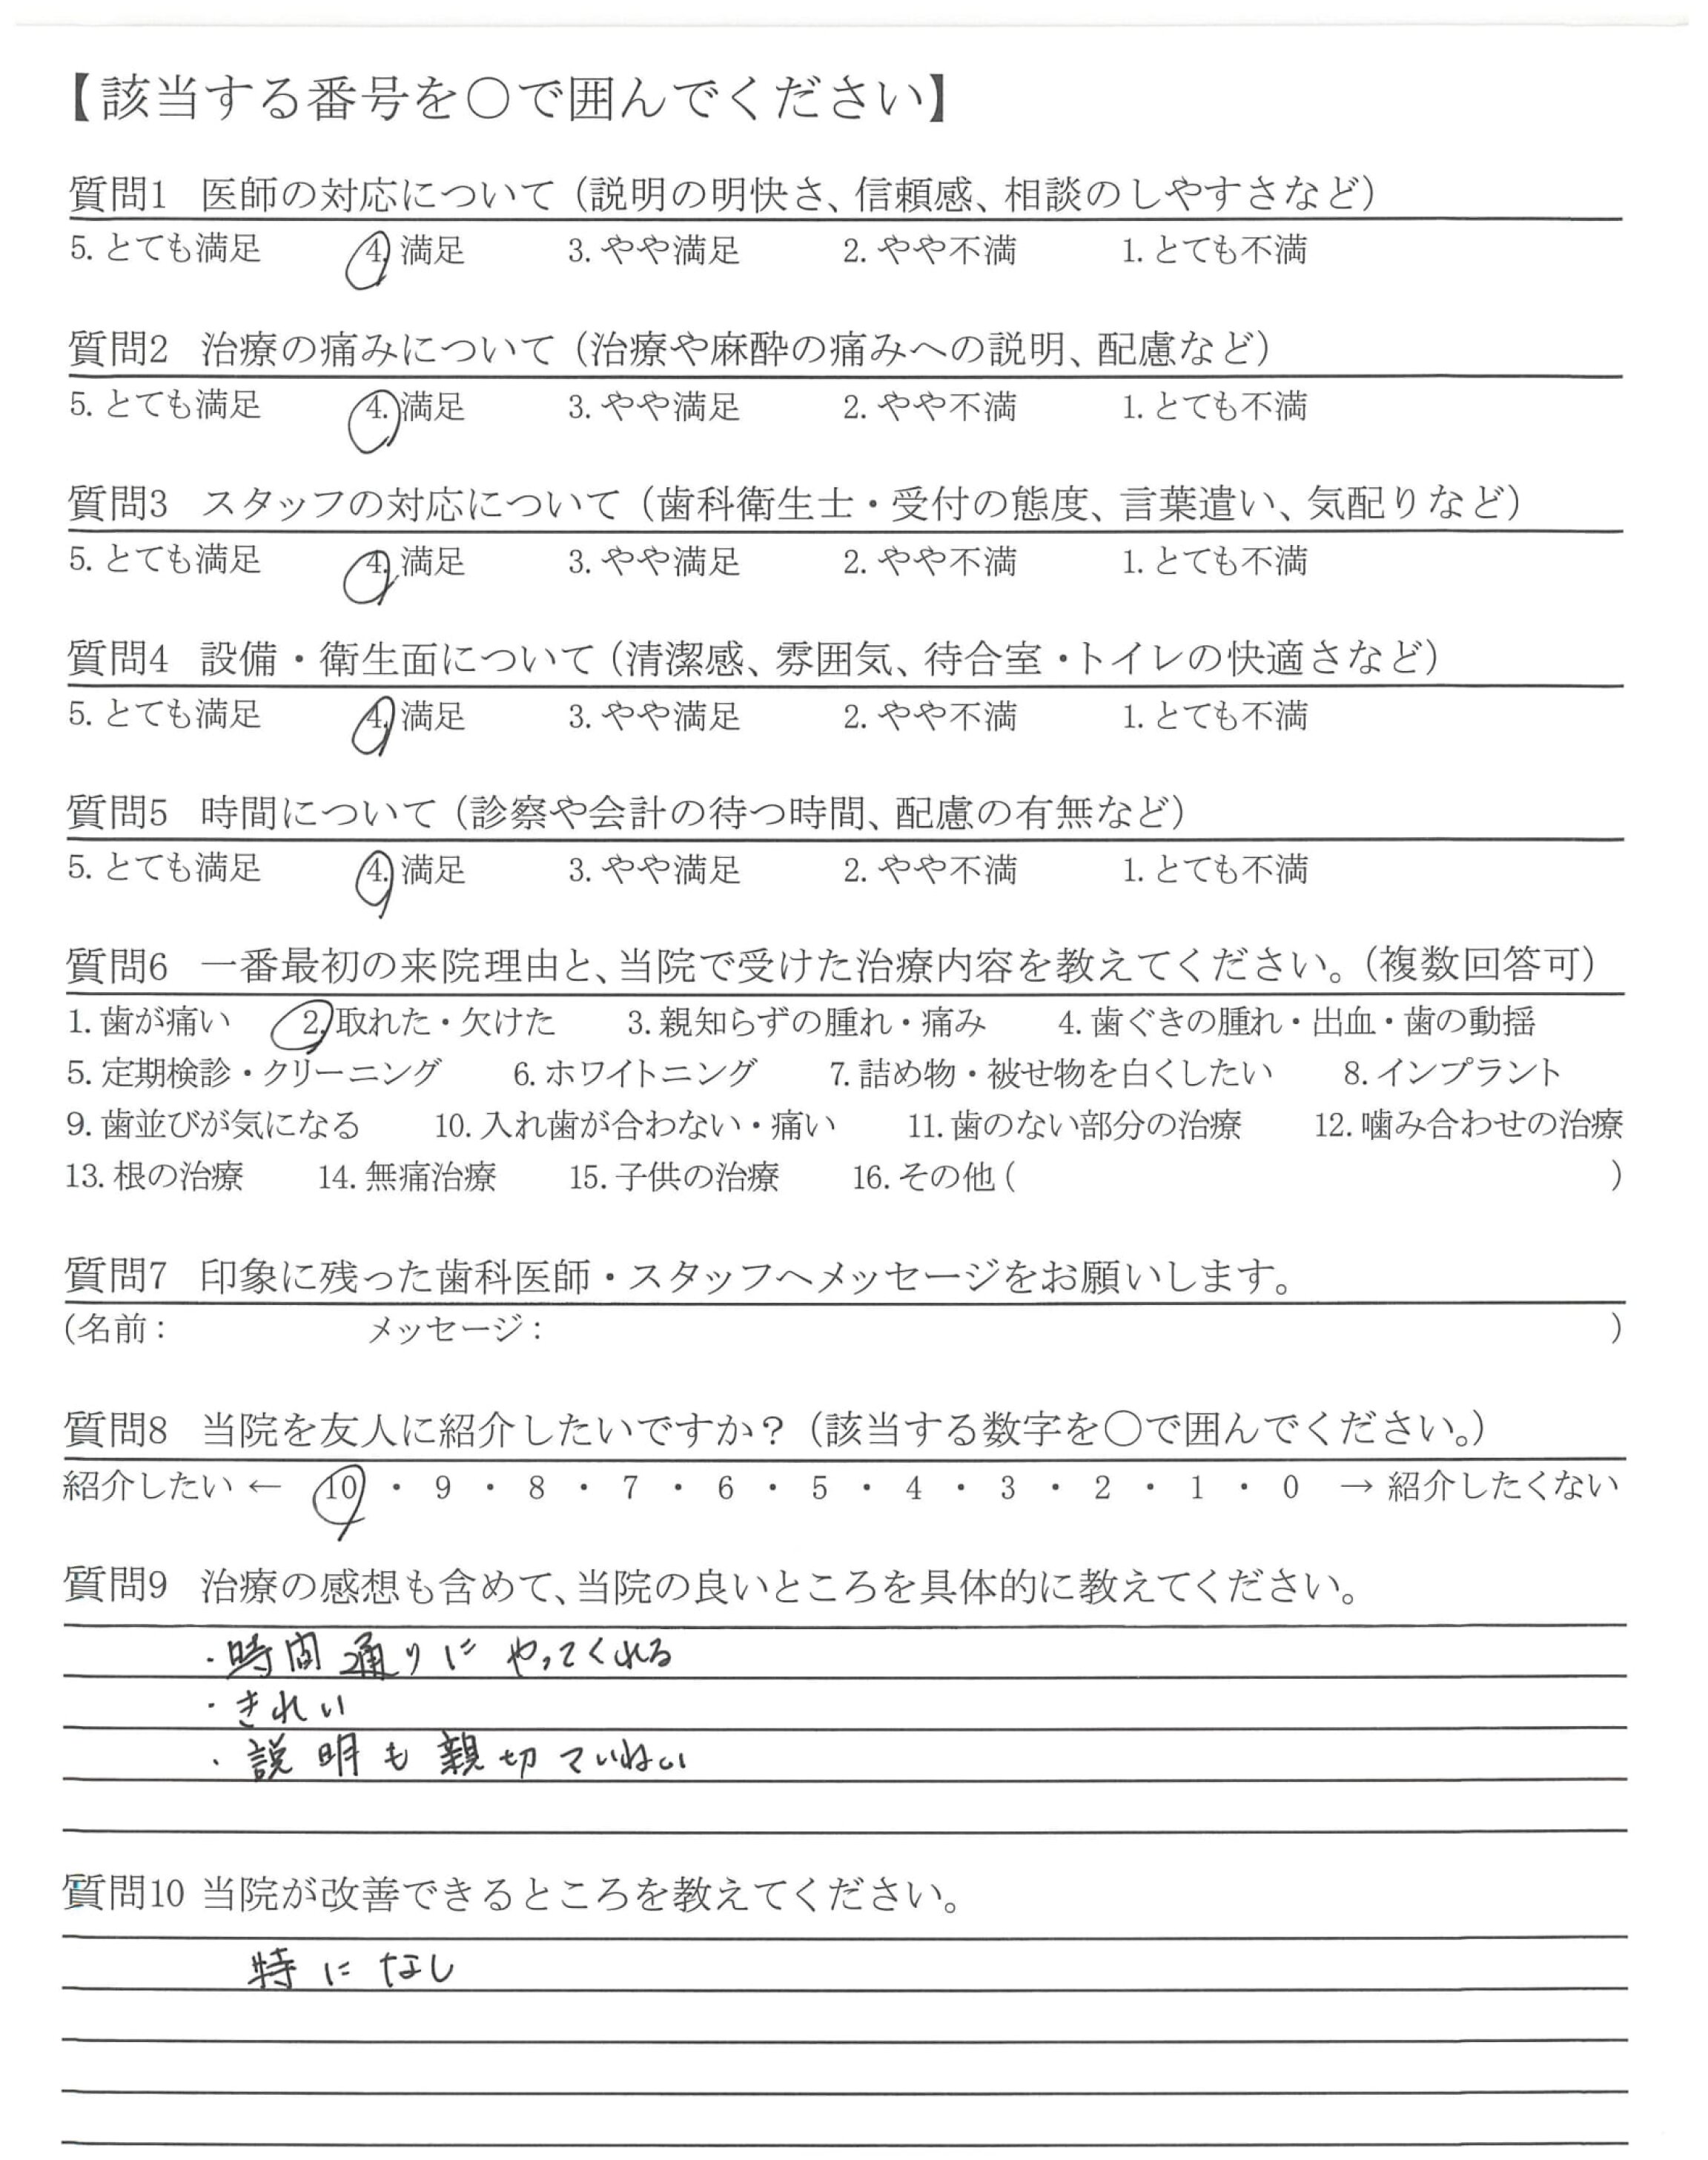 【該当する番号を○で囲んでください】
質問1 医師の対応について（説明の明快さ、信頼感、相談のしやすさなど）
5. とても満足 4. 満足 3. やや満足 2. やや不満 1. とても不満
質問2 治療の痛みについて（治療や麻酔の痛みへの説明、配慮など）
5. とても満足 4. 満足 3. やや満足 2. やや不満 1. とても不満
質問3 スタッフの対応について（歯科衛生士・受付の態度、言葉遣い、気配りなど）
5. とても満足 4. 満足 3. やや満足 2. やや不満 1. とても不満
質問4 設備・衛生面について（清潔感、雰囲気、待合室・トイレの快適さなど）
5. とても満足 4. 満足 3. やや満足 2. やや不満 1. とても不満
質問5 時間について（診察や会計の待つ時間、配慮の有無など）
5. とても満足 4. 満足 3. やや満足 2. やや不満 1. とても不満
質問6 一番最初の来院理由と、当院で受けた治療内容を教えてください。（複数回答可）
1. 歯が痛い 2. 取れた・欠けた 3. 親知らずの腫れ・痛み 4. 歯ぐきの腫れ・出血・歯の動揺
5. 定期検診・クリーニング 6. ホワイトニング 7. 詰め物・被せ物を白くしたい 8. インプラント
9. 歯並びが気になる 10. 入れ歯が合わない・痛い 11. 歯のない部分の治療 12. 噛み合わせの治療
13. 根の治療 14. 無痛治療 15. 子供の治療 16. その他（ ）
質問7 印象に残った歯科医師・スタッフへメッセージをお願いします。
（名前： メッセージ： ）
質問8 当院を友人に紹介したいですか？（該当する数字を○で囲んでください。）
紹介したい ← 10 ・ 9 ・ 8 ・ 7 ・ 6 ・ 5 ・ 4 ・ 3 ・ 2 ・ 1 ・ 0 → 紹介したくない
質問9 治療の感想も含めて、当院の良いところを具体的に教えてください。
・時間通りにやってくれる
・きれい
・説明も親切ていねい
質問10 当院が改善できるところを教えてください。
特になし